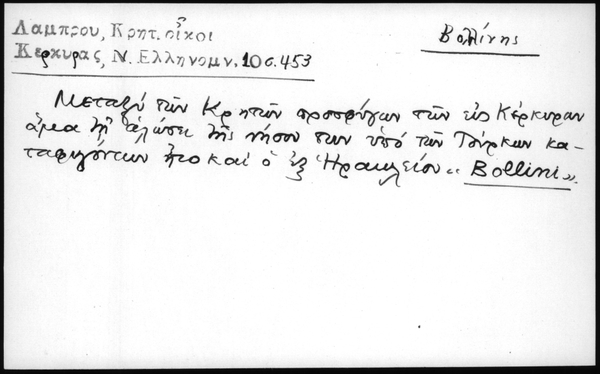 Λαμπρου, Κρητ. οἶκοι
Κερκυρας, Ν. Ελληνομν. 10 σ. 453
Βολίνης
Μεταξύ τῶν Κρητῶν προσφύγων τῶν εἰς Κέρκυραν
ἅμα τῇ ἁλώσει τῆς νήσου των ὑπό τῶν Τούρκων κα-
ταφυγόντων ἦτο καί ὁ ἐξ Ἡρακλείου „Bollini".